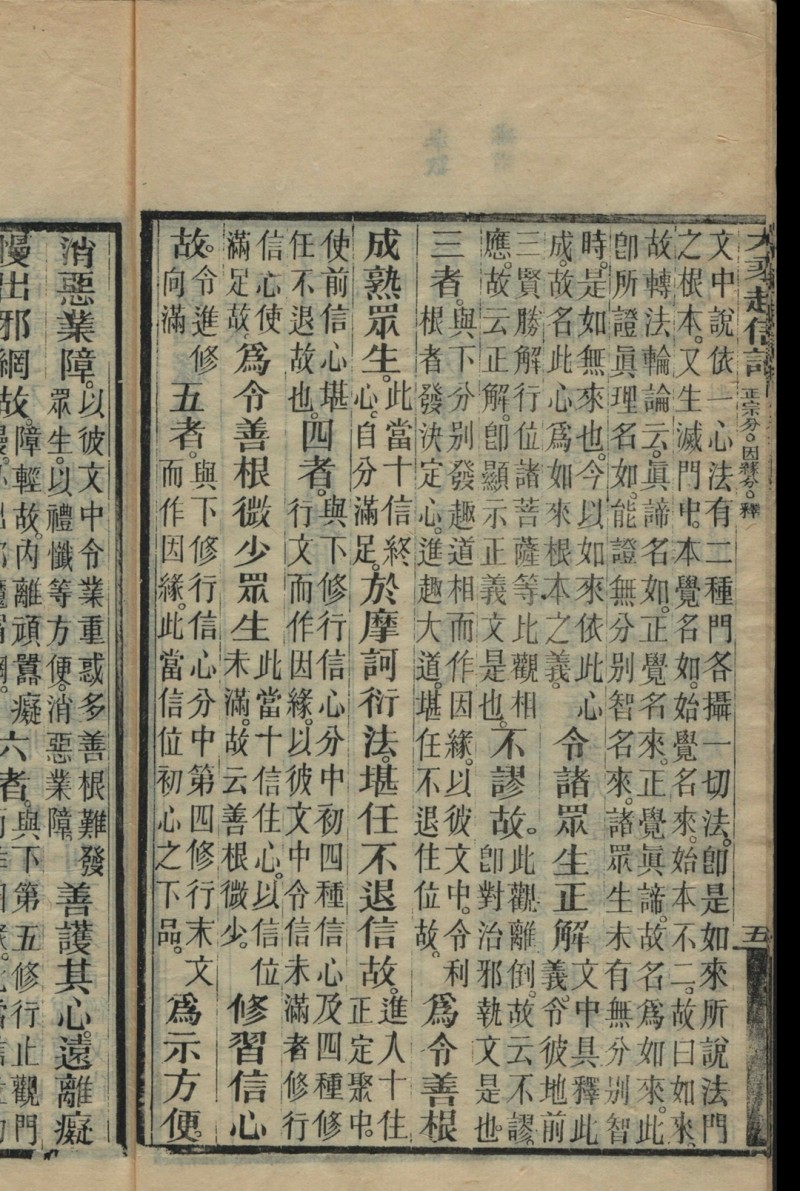 大乘起信論 正宗分。因緣分。釋 五
文中說依一心法有二種門各攝一切法。卽是如來所說法門
之根本。又生滅門中。本覺名如。始覺名來。始本不二。故曰如來。
故轉法輪論云。眞諦名如。正覺名來。正覺眞諦。故名爲如來。此
卽所證眞理名如。能證無分別智名來。諸眾生未有無分別智
時。是如無來也。今以如來依此心
成。故名此心爲如來根本之義。
令諸眾生正解
文中具釋此
義。令彼地前
三賢勝解行位諸菩薩等比觀相
應。故云正解。卽顯示正義文是也。
不謬故。
此觀離倒。故云不謬。
卽對治邪執文是也
三者。
與下分別發趣道相而作因緣。以彼文中。令利
根者發決定心。進趣大道。堪任不退住位故。
爲令善根
成熟眾生。
此當十信終
心。自分滿足。
於摩訶衍法。堪任不退信故。
進入十住
正定聚中。
使前信心堪
任不退故也。
四者。
與下修行信心分中初四種信心及四種修
行文而作因緣。以彼文中令信未滿者修行
信心使
滿足故
爲令善根微少眾生
此當十信住心。以信位
未滿。故云善根微少。
修習信心
故。
令進修
向滿
五者。
與下修行信心分中第四修行末文
而作因緣。此當信位初心之下品。
爲示方便。
消惡業障。
以彼文中令業重惑多善根難發
眾生。以禮懺等方便。消惡業障。
善護其心。遠離癡
慢出邪網故。
障輕故。內離頑嚚癡
六者。
與下第五修行止觀門